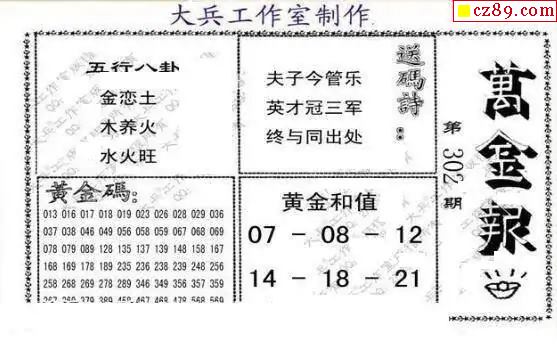 大兵工作室制作
cz89.com
五行八卦
金恋土
木养火
水火旺
送碼詩：
夫子今管乐
英才冠三军
终与同出处
萬金报
第302期
黄金碼:
013 016 017 018 019 023 026 028 029 036
037 038 046 049 059 067 068 069 073 076
078 079 089 128 135 137 139 148 158 167
168 169 178 189 235 236 238 239 245 256
258 268 269 278 289 346 349 356 357 359
黄金和值
07 - 08 - 12
14 - 18 - 21